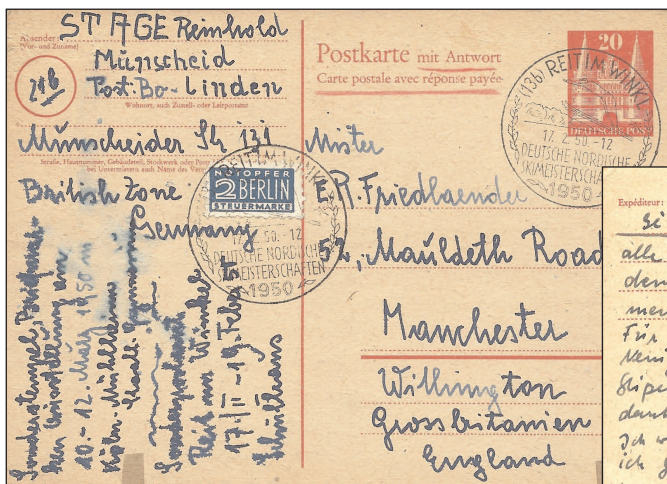 Absender:
(Vor- und Zuname)
STAGE Reinhold
Münscheid
21b
Post. Bo-Linden
Wohnort, auch Zustell- oder Leitpostamt
Münscheider Str 131
Straße, Hausnummer, Gebäudeteil, Stockwerk oder Post
bei Untermietern auch Name des Ver
British Zone
Germany
Postkarte mit Antwort
Carte postale avec réponse payée
20
DEUTSCHE POST
(13b) REIT IM WINKL
17. 2. 50.-12
DEUTSCHE NORDISCHE
SKIMEISTERSCHAFTEN
1950
NOTOPFER
2 BERLIN
STEUERMARKE
REIT IM WINKL
50.-12
DEUTSCHE NORDISCHE
SKIMEISTERSCHAFTEN
1950
Mister
E. R. Friedlaender
52, Mauldeth Road
Manchester
Withington
Grossbritanien
England
Sonderstempel, Briefmar-
ken Ausstellung am
10.-12. März 1950 in
Köln-Mühlheim
Sonderpostamt
Reit im Winkel
17/II-19. Febr.
Expéditeur:
alle
den
mer
Für
kein
dan
Ich w
ich g